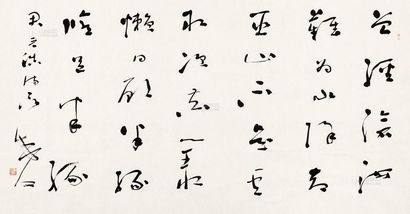 曾經滄海
難為水除却
巫山不是雲
取次花叢
懶回顧半緣
修道半緣
君